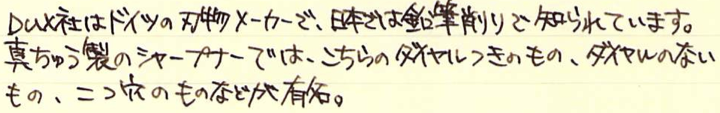 DUX社はドイツの刃物メーカーで、日本では鉛筆削りで知られています。
真ちゅう製のシャープナーでは、こちらのダイヤルつきのもの、ダイヤルのない
もの、二つ穴のものなどが有名。